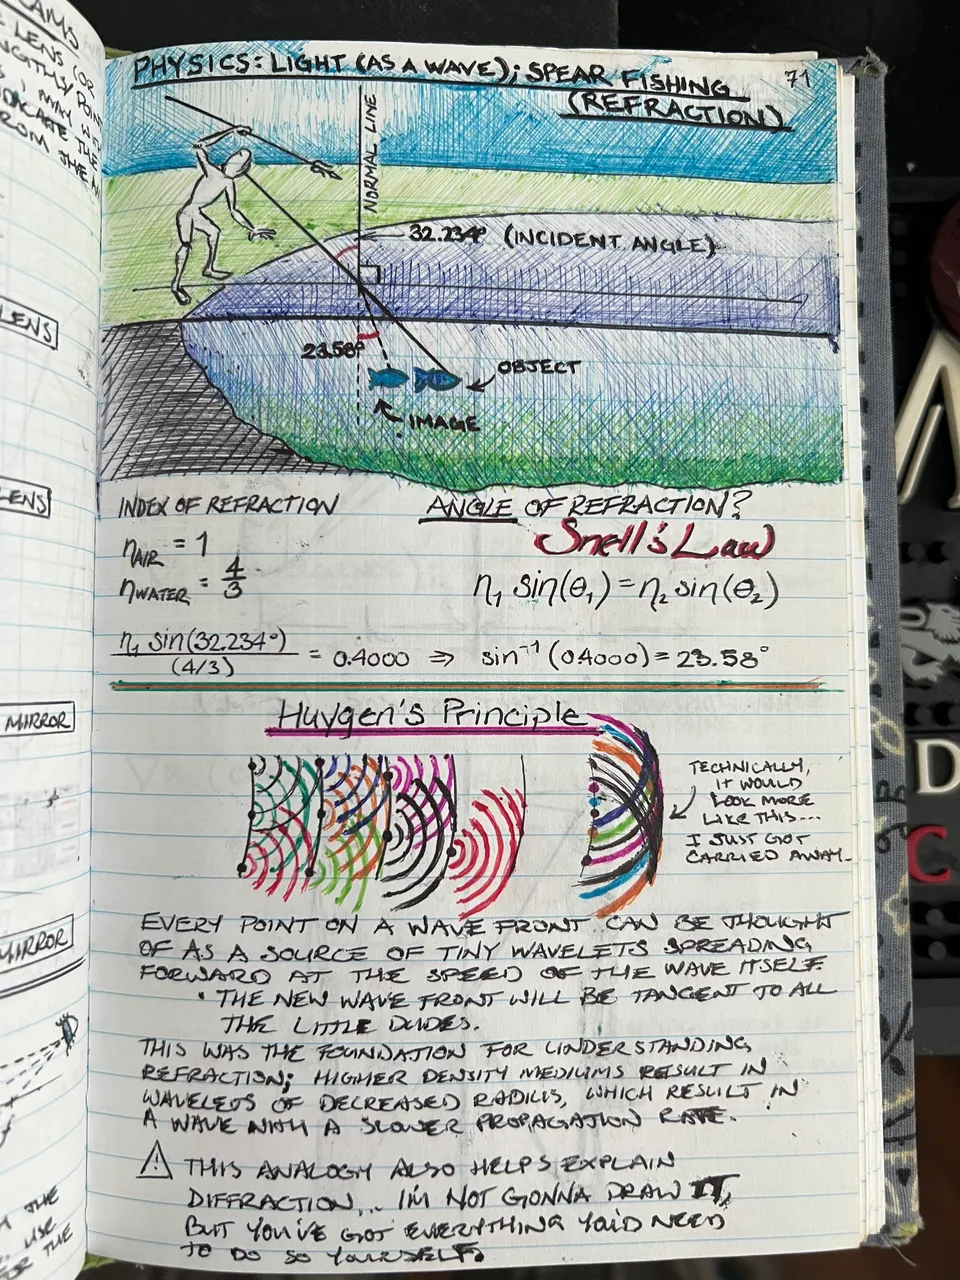 PHYSICS: LIGHT (AS A WAVE); SPEAR FISHING
(REFRACTION)
71
NORMAL LINE
32.234° (INCIDENT ANGLE)
23.58°
OBJECT
IMAGE
INDEX OF REFRACTION
ηAIR = 1
ηWATER = 4/3
ANGLE OF REFRACTION?
Snell's Law
η₁ sin(θ₁) = η₂ sin(θ₂)
η₁ sin(32.234°) / (4/3) = 0.4000 ⇒ sin⁻¹(0.4000) = 23.58°
Huygen's Principle
TECHNICALLY,
IT WOULD
LOOK MORE
LIKE THIS...
I JUST GOT
CARRIED AWAY.
EVERY POINT ON A WAVE FRONT CAN BE THOUGHT
OF AS A SOURCE OF TINY WAVELETS SPREADING
FORWARD AT THE SPEED OF THE WAVE ITSELF.
• THE NEW WAVE FRONT WILL BE TANGENT TO ALL
THE LITTLE DUDES.
THIS WAS THE FOUNDATION FOR UNDERSTANDING
REFRACTION; HIGHER DENSITY MEDIUMS RESULT IN
WAVELETS OF DECREASED RADIUS, WHICH RESULT IN
A WAVE WITH A SLOWER PROPAGATION RATE.
⚠ THIS ANALOGY ALSO HELPS EXPLAIN
DIFFRACTION... I'M NOT GONNA DRAW IT,
BUT YOU'VE GOT EVERYTHING YOU'D NEED
TO DO SO YOURSELF.
LENS (OR
FROM THE
LENS
LENS
MIRROR
MIRROR
THE
USE
OR THE
D
C